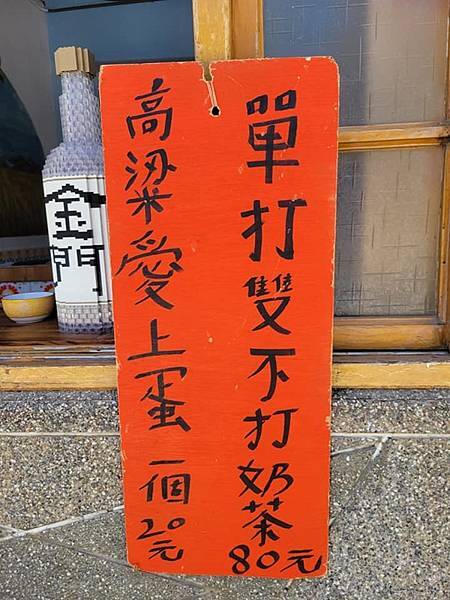 單打雙不打奶茶80元
高粱愛上蛋一個20元
金門